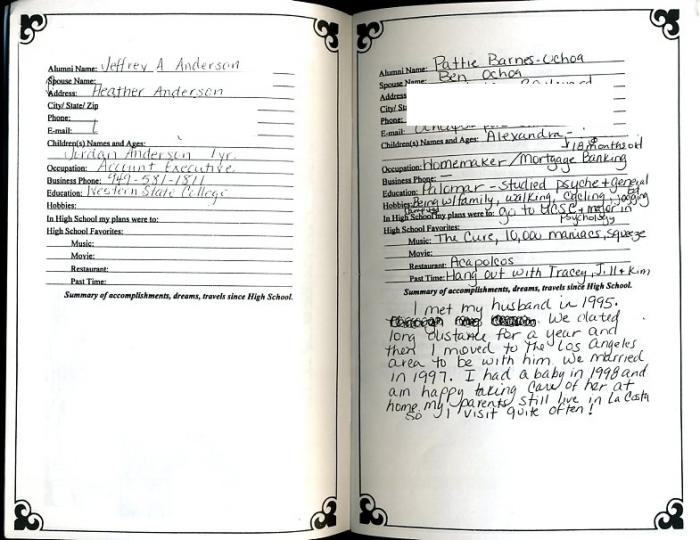 Alumni Name: Jeffrey A Anderson
Spouse Name:
Address: Heather Anderson
City/ State/ Zip
Phone:
E-mail:
Children(s) Names and Ages:
Jordan Anderson 1yr.
Occupation: Account Executive
Business Phone: 949-581-1811
Education: Western State College
Hobbies:
In High School my plans were to:
High School Favorites:
Music:
Movie:
Restaurant:
Past Time:
Summary of accomplishments, dreams, travels since High School.
Alumni Name: Pattie Barnes-Ochoa
Spouse Name: Ben Ochoa
Address
City/ Sta
Phone:
E-mail:
Children(s) Names and Ages: Alexandra -
18 months old
Occupation: Homemaker/Mortgage Banking
Business Phone: —
Education: Palomar - studied psyche + general
Hobbies: Being w/family, walking, cycling, jogging
In High School my plans were to: go to UCSC + major in
Psychology
High School Favorites:
Music: The Cure, 10,000 maniacs, Squeeze
Movie:
Restaurant: Acapolcos
Past Time: Hang out with Tracey, Jill + Kim
Summary of accomplishments, dreams, travels since High School.
I met my husband in 1995.
We dated
long distance for a year and
then I moved to the Los Angeles
area to be with him. We married
in 1997. I had a baby in 1998 and
am happy taking care of her at
home. My parents still live in La Costa
so I visit quite often!